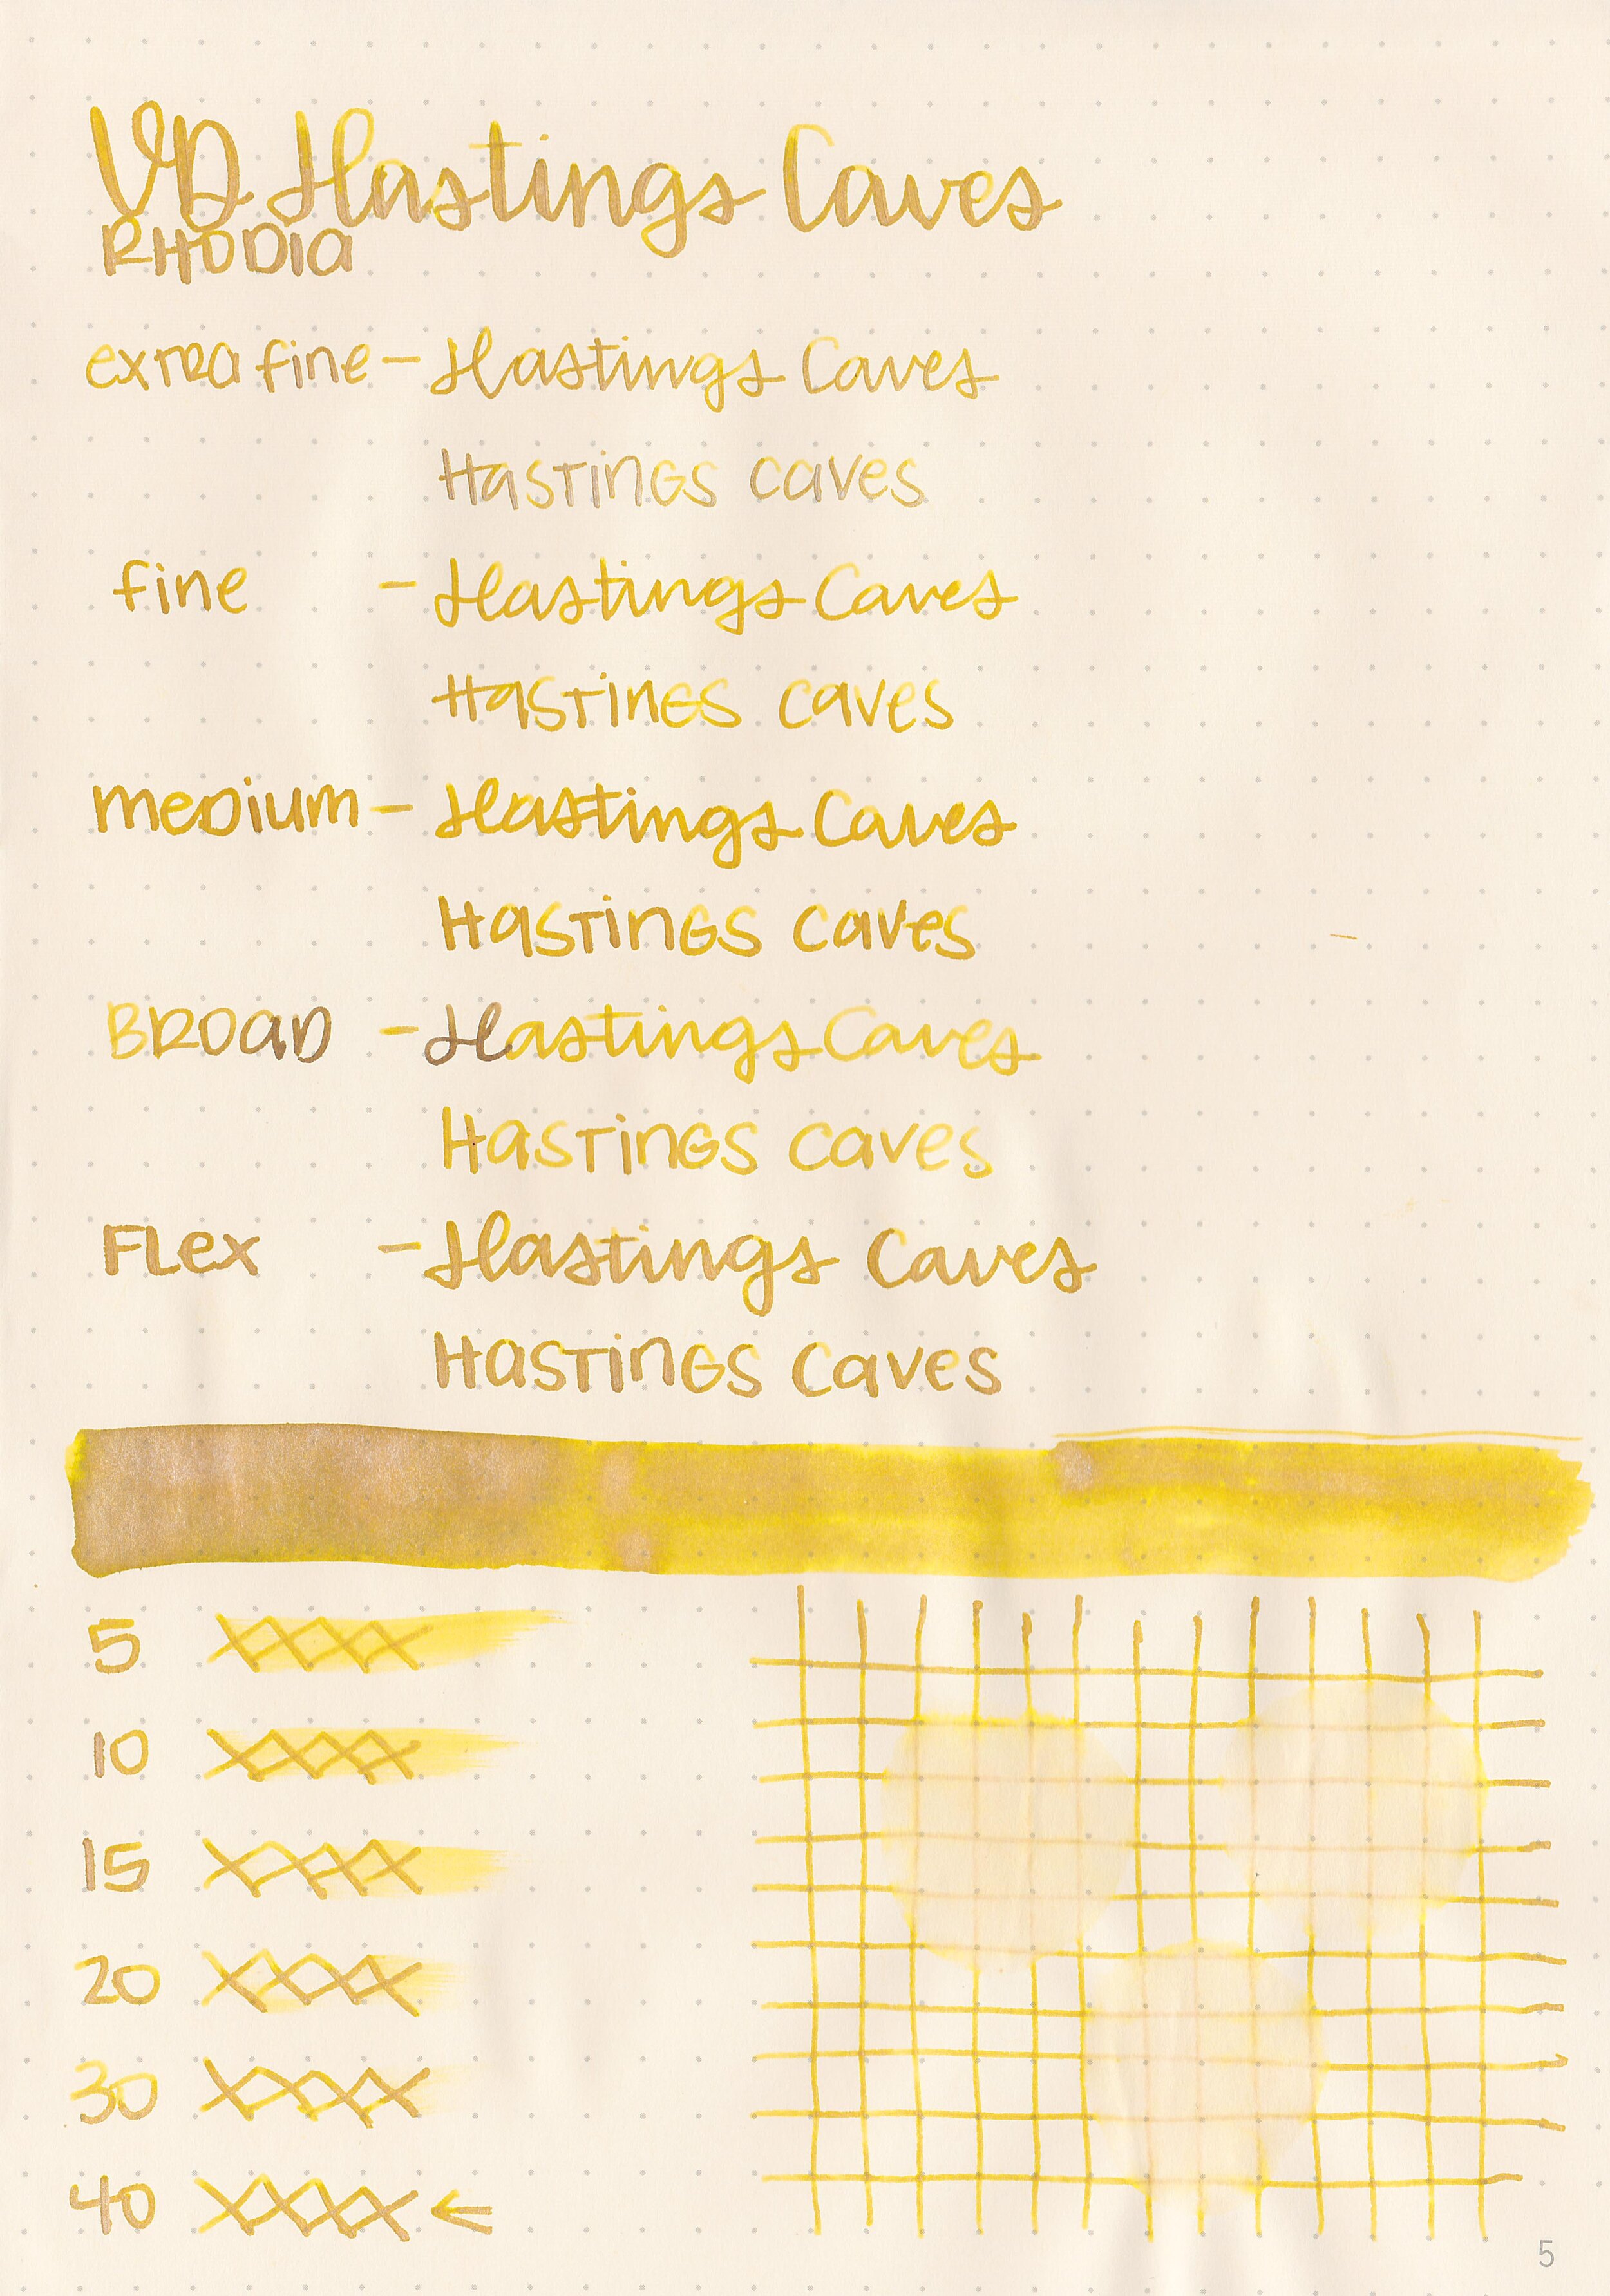 VD Hastings Caves
RHODIA
extra fine – Hastings Caves
Hastings Caves
fine – Hastings Caves
Hastings Caves
medium – Hastings Caves
Hastings Caves
Broad – Hastings Caves
Hastings Caves
Flex – Hastings Caves
Hastings Caves
5 XXXX
10 XXXX
15 XXXX
20 XXXX
30 XXXX
40 XXXX ←
5